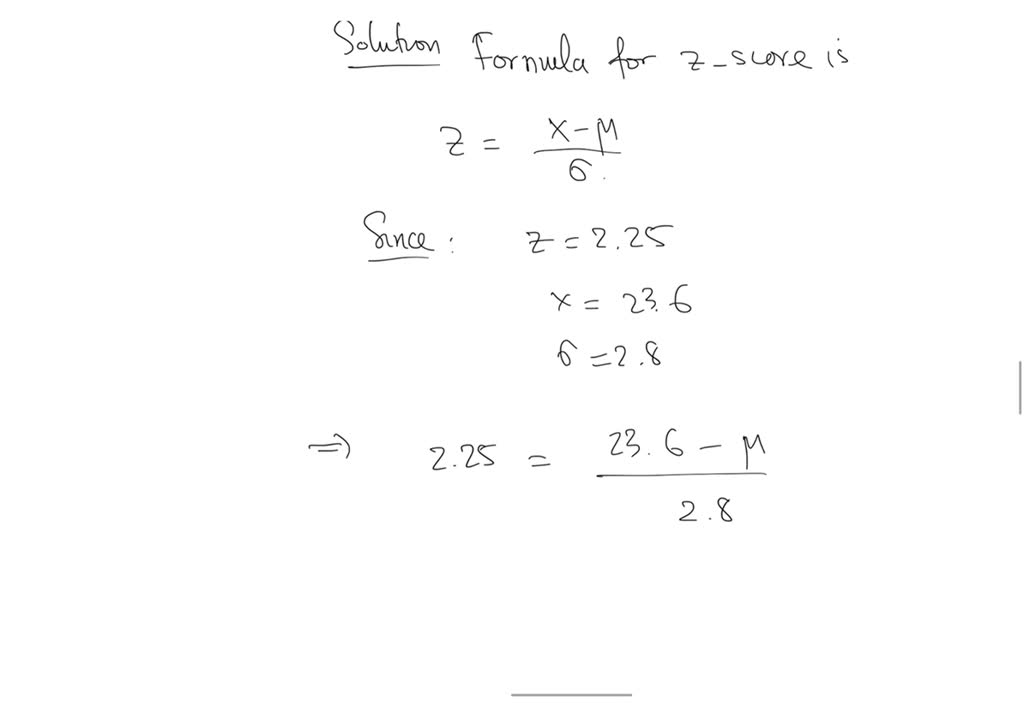 Solution Formula for z-score is
z = x-μ
σ.
Since: z = 2.25
x = 23.6
σ = 2.8
⇒ 2.25 = 23.6 - μ
2.8